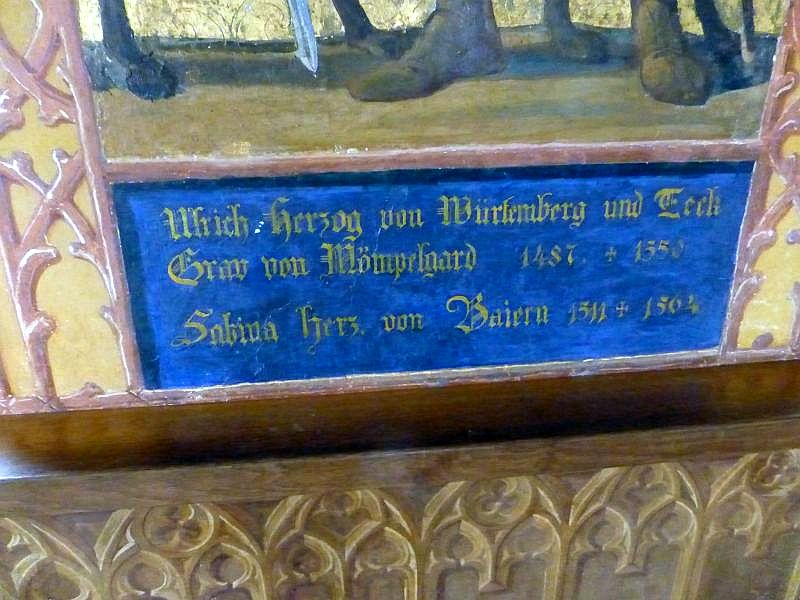 Ulrich Herzog von Würtemberg und Teck
Grav von Mömpelgard 1487. + 1550
Sabina Herz. von Baiern 1511 + 1564.